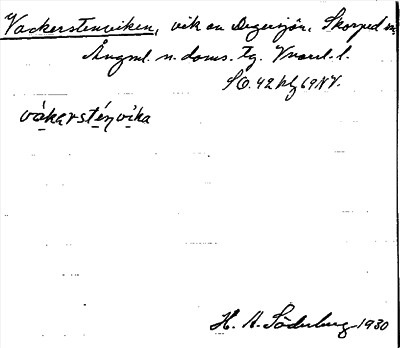 Vackerstenviken, vik av Degersjön, Skorped sn,
Ångml. n. doms. tg. Vnorrl. l.
SO. 42 blg 69 NV.
vákarsténvika
H. A. Söderberg 1930